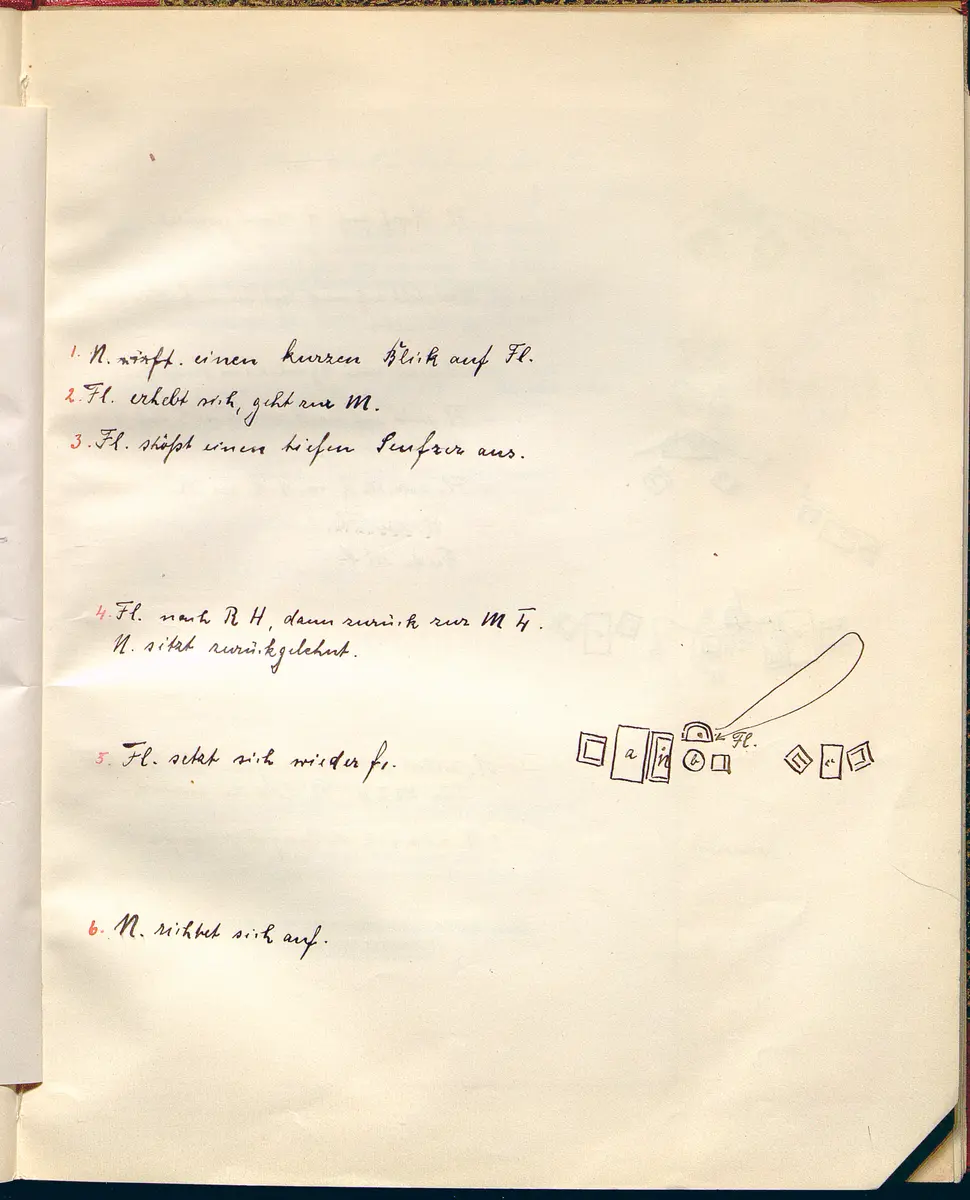 1. N. wirft. einen kurzen Blick auf Fl.
2. Fl. erhebt sich, geht zur M.
3. Fl. stößt einen tiefen Seufzer aus.
4. Fl. nach R H, dann zurück zur M
N. sitzt zurückgelehnt.
a n b Fl. c
5. Fl. setzt sich wieder
6. N. richtet sich auf.